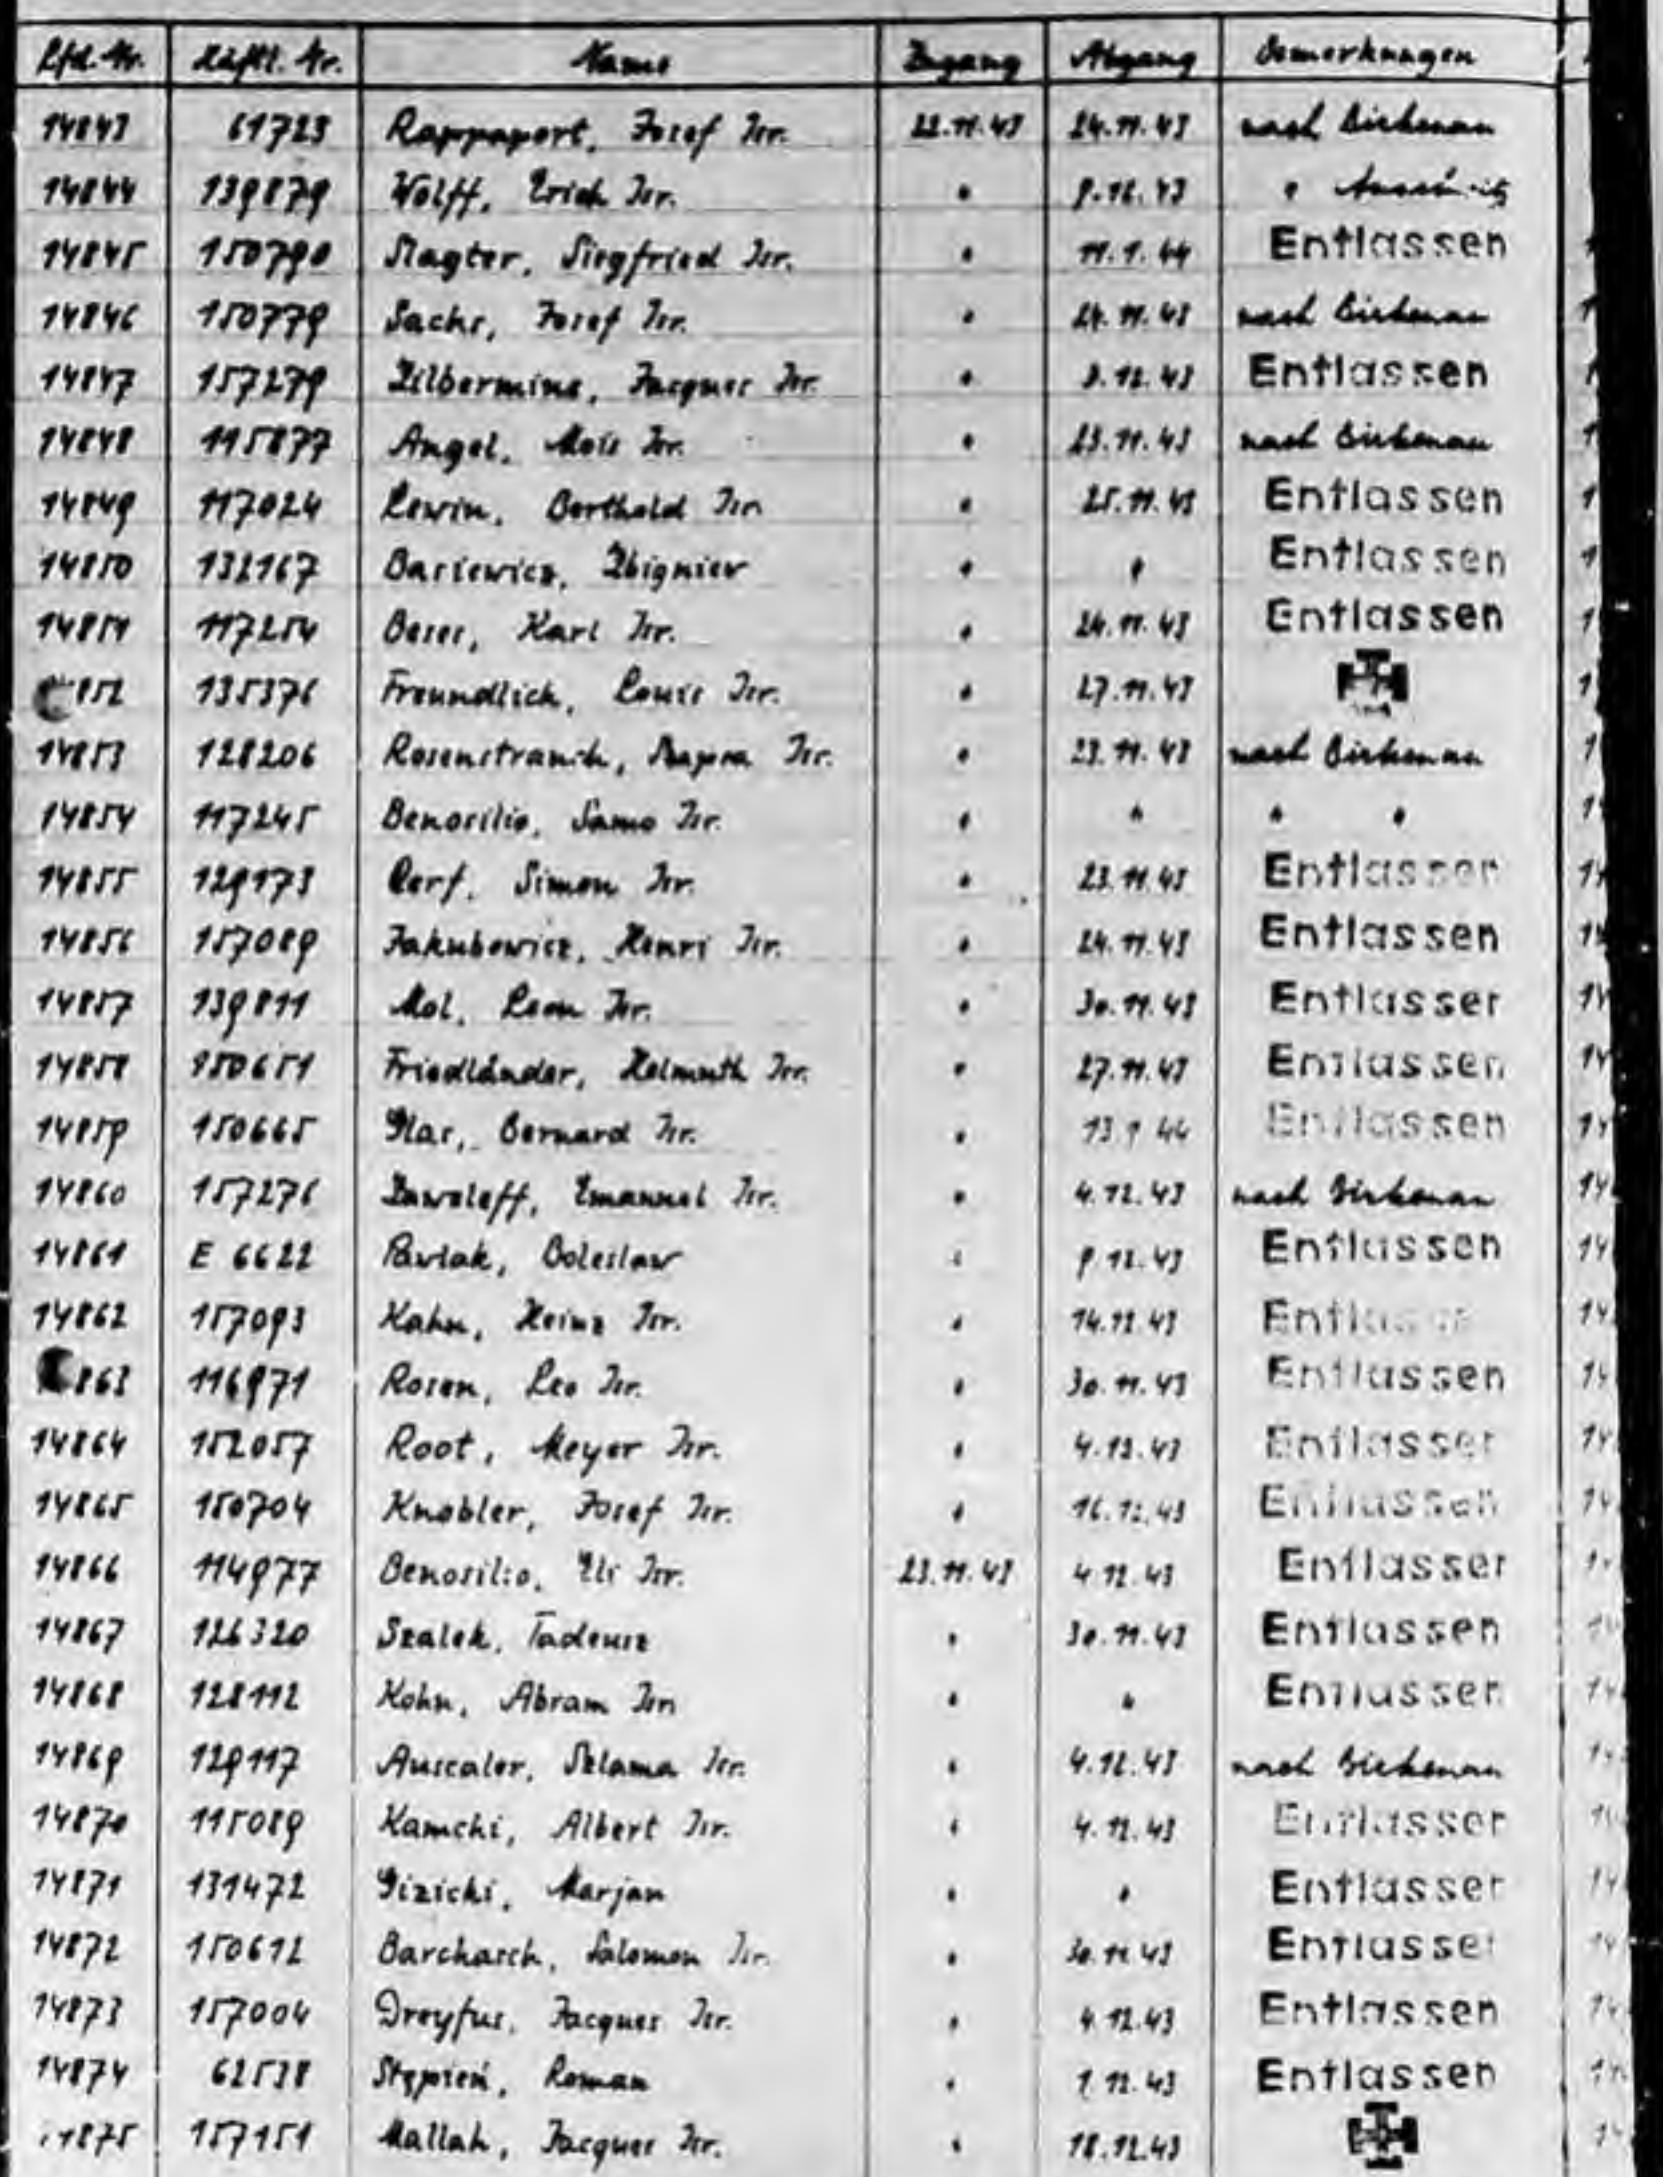 Lfd. Nr. Häftl. Nr. Name Zugang Abgang Bemerkungen
14843 61723 Rappaport, Josef Isr. 22.11.43 24.11.43 nach Birkenau
14844 139879 Wolff, Erich Isr. " 9.12.43 "
14845 150790 Slagter, Siegfried Isr. " 11.1.44 Entlassen
14846 150779 Sachs, Josef Isr. " 24.11.43 nach Birkenau
14847 157279 Zilbermine, Jacques Isr. " 3.12.43 Entlassen
14848 115877 Angel, Mois Isr. " 23.11.43 nach Birkenau
14849 117024 Lewin, Berthold Isr. " 25.11.43 Entlassen
14850 132167 Basiewicz, Zbigniew " " Entlassen
14851 117254 Beses, Karl Isr. " 24.11.43 Entlassen
14852 135376 Freundlich, Louis Isr. " 27.11.43
14853 128206 Rosenstrauch, Isr. " 23.11.43 nach Birkenau
14854 117245 Benosilio, Samo Isr. " " " "
14855 129173 Cerf, Simon Isr. " 23.11.43 Entlassen
14856 157089 Jakubowicz, Henri Isr. " 24.11.43 Entlassen
14857 139811 Mol, Leon Isr. " 30.11.43 Entlassen
14858 150651 Friedländer, Helmuth Isr. " 27.11.43 Entlassen
14859 150665 Glas, Bernard Isr. " 13.1.44 Entlassen
14860 157276 Emanuel Isr. " 4.12.43 nach Birkenau
14861 E 6622 Pawlak, Boleslaw " 9.12.43 Entlassen
14862 157093 Kahn, Heinz Isr. " 14.12.43 Entlassen
14863 116971 Rosen, Leo Isr. " 30.11.43 Entlassen
14864 152057 Root, Meyer Isr. " 4.12.43 Entlassen
14865 150704 Knobler, Josef Isr. " 16.12.43 Entlassen
14866 114977 Benosilio, Eli Isr. 23.11.43 4.12.43 Entlassen
14867 126320 Szalek, Tadeusz " 30.11.43 Entlassen
14868 128112 Kohn, Abram Isr. " " Entlassen
14869 129117 Auscaler, Szlama Isr. " 4.12.43 nach Birkenau
14870 115089 Kamchi, Albert Isr. " 4.12.43 Entlassen
14871 131472 Gizicki, Marjan " " Entlassen
14872 150612 Barchasch, Salomon Isr. " 30.11.43 Entlassen
14873 157004 Dreyfus, Jacques Isr. " 4.12.43 Entlassen
14874 62538 Stępień, Roman " 1.12.43 Entlassen
14875 157151 Mallah, Jacques Isr. " 18.12.43